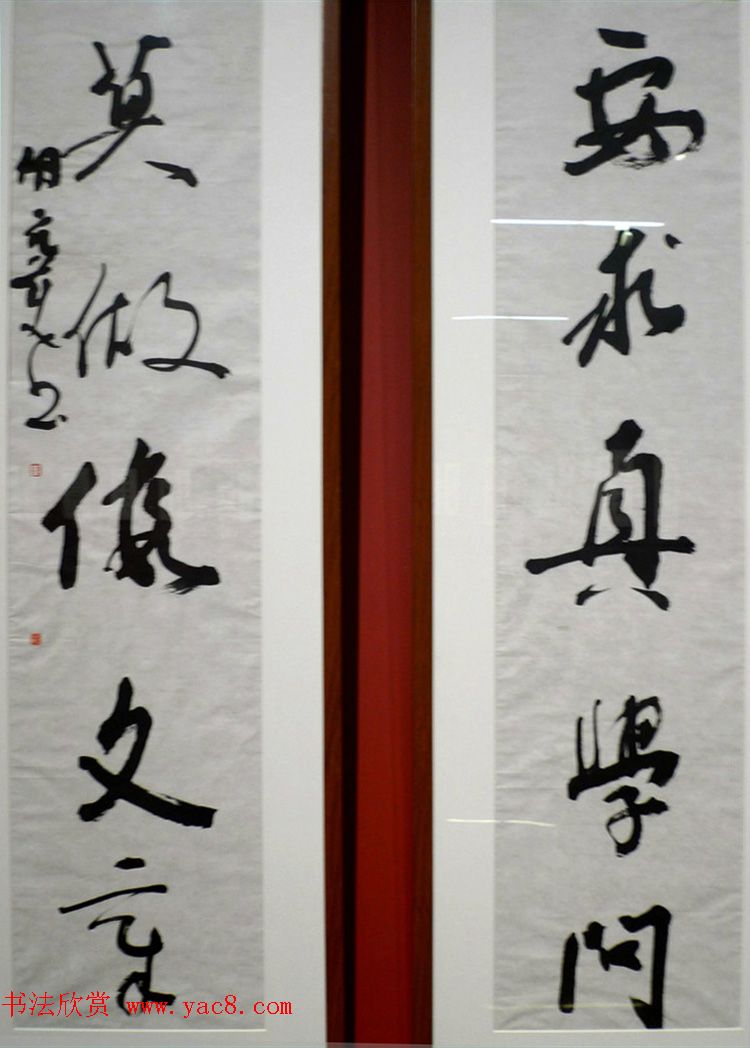 要求真學問
莫做假文章
书法欣赏 www.yac8.com